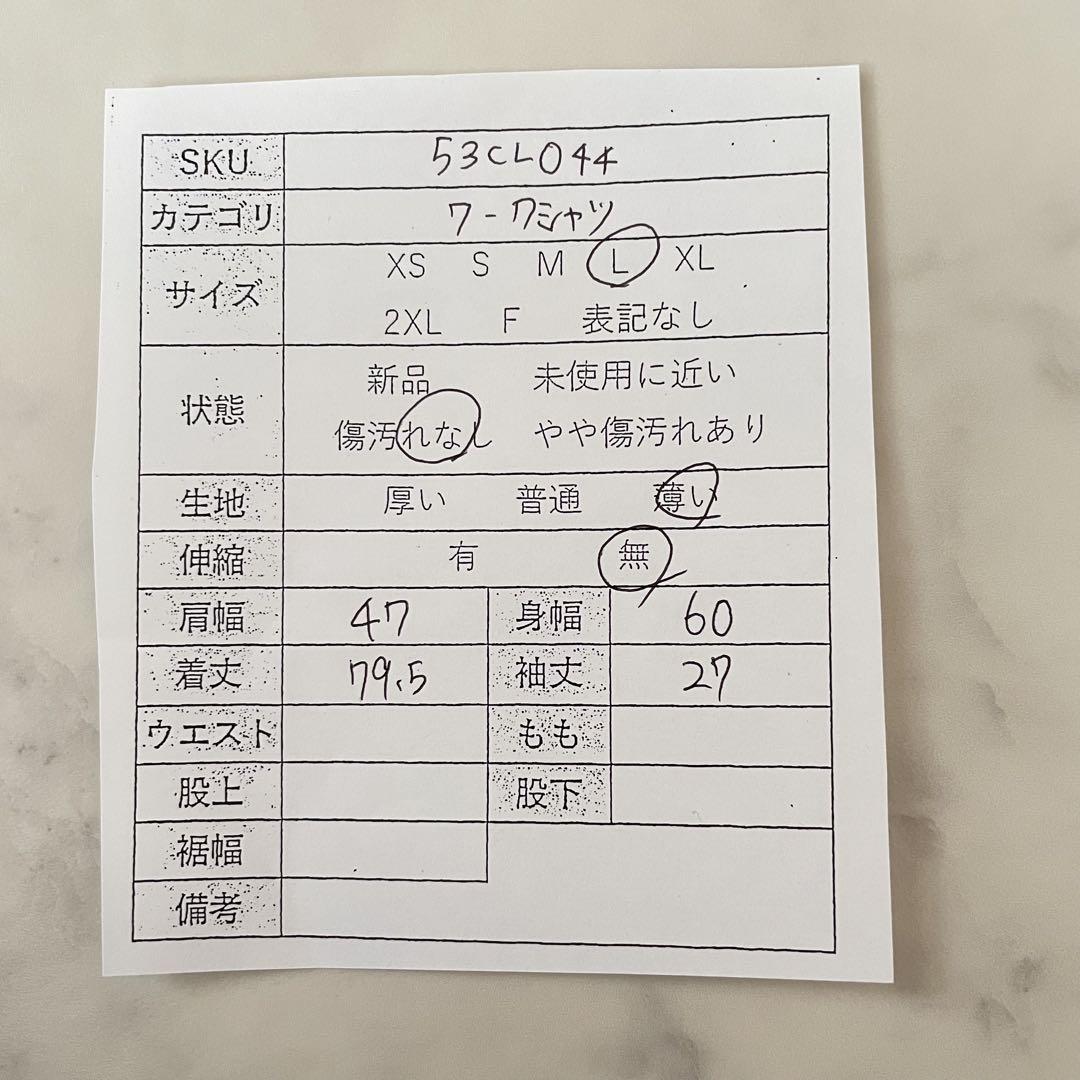 SKU 53CL044
カテゴリ ワークシャツ
サイズ XS S M L XL
2XL F 表記なし
状態 新品 未使用に近い
傷汚れなし やや傷汚れあり
生地 厚い 普通 薄い
伸縮 有 無
肩幅 47 身幅 60
着丈 79.5 袖丈 27
ウエスト もも
股上 股下
裾幅
備考